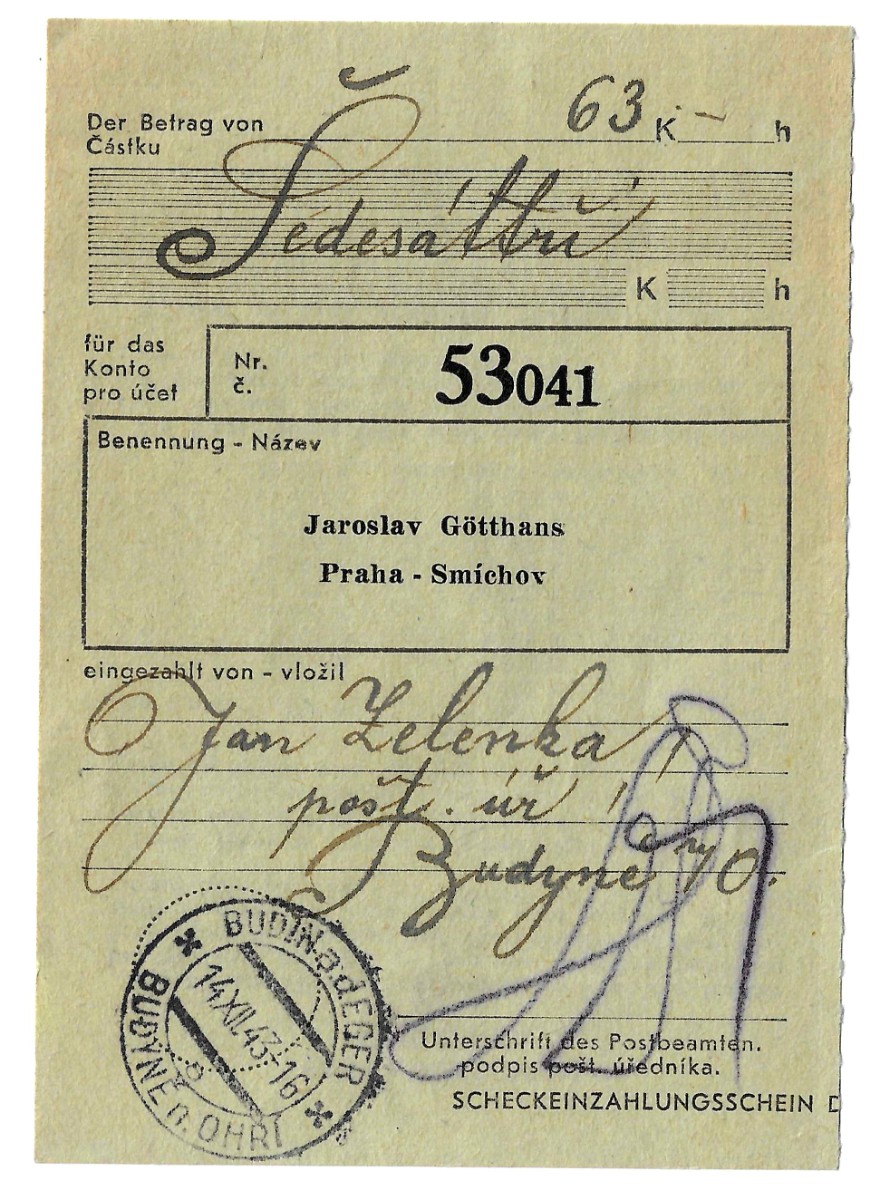 Der Betrag von
Částku
63 K - h
Šedesáttři
K h
für das
Konto
pro účet
Nr.
č.
53041
Benennung - Název
Jaroslav Götthans
Praha - Smíchov
eingezahlt von - vložil
Jan Zelenka
pošt. úř
Budyně n/O.
BUDIN a.d EGER
14.XII.43-16
BUDYNĚ n. OHŘÍ
Unterschrift des Postbeamten.
podpis pošt. úředníka.
SCHECKEINZAHLUNGSSCHEIN D